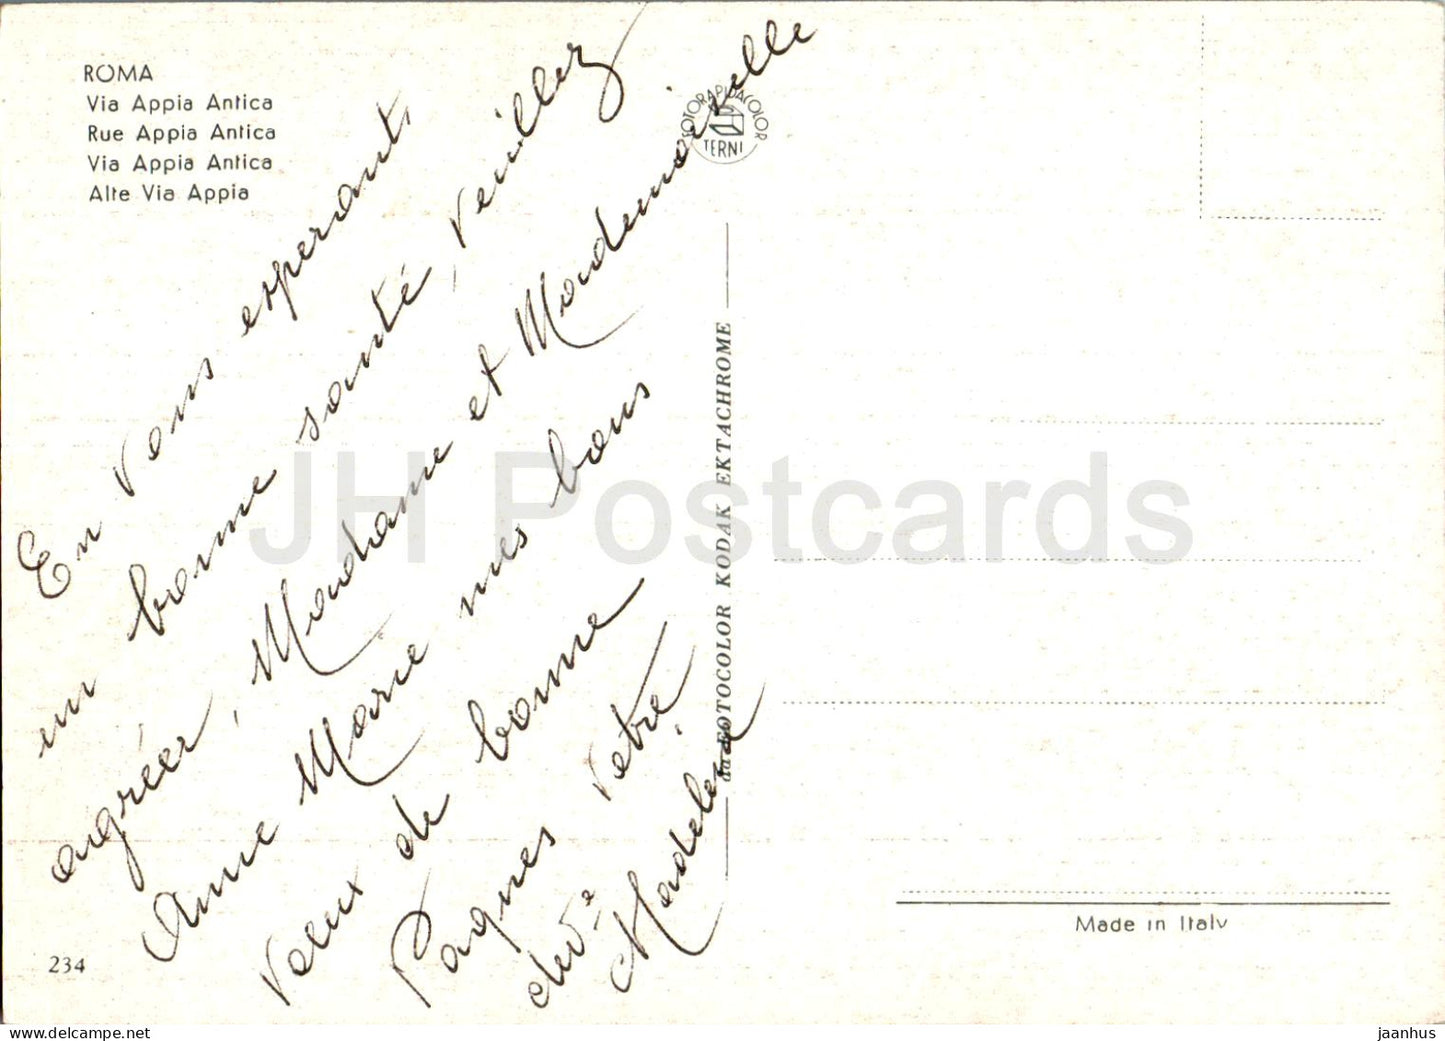 ROMA
Via Appia Antica
Rue Appia Antica
Via Appia Antica
Alte Via Appia
En vous esperant
en bonne santé, Veuillez
agréer, Madame et Mademoiselle
Anne Marie mes bons
Veux de bonne
Paques Votre
Madeleine
234
FOTORAPIDACOLOR
TERNI
da FOTOCOLOR KODAK EKTACHROME
Made in Italy
JH Postcards
www.delcampe.net
jaanhus